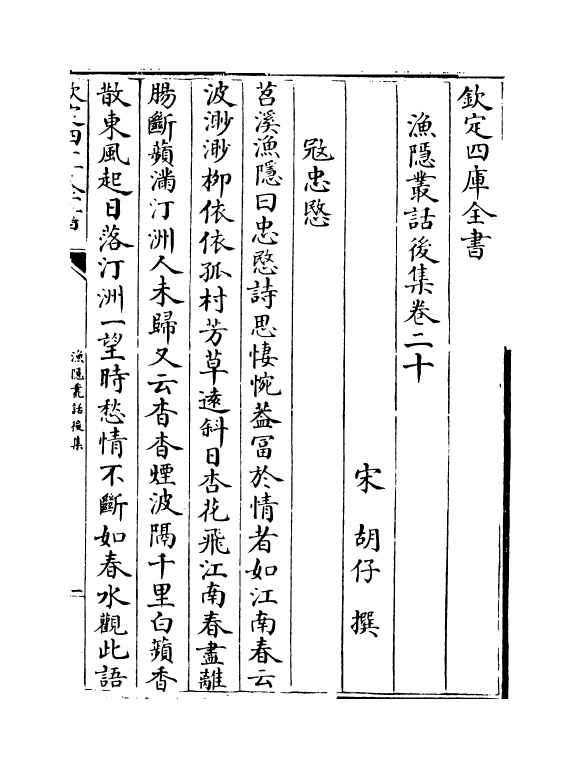 欽定四庫全書
漁隱叢話後集卷二十
宋 胡仔 撰
冦忠愍
苕溪漁隱曰忠愍詩思悽惋葢冨於情者如江南春云
波渺渺栁依依孤村芳草逺斜日杏花飛江南春盡離
腸斷蘋滿汀洲人未歸又云杳杳煙波隔千里白蘋香
散東風起日落汀洲一望時愁情不斷如春水觀此語
漁隱叢話後集